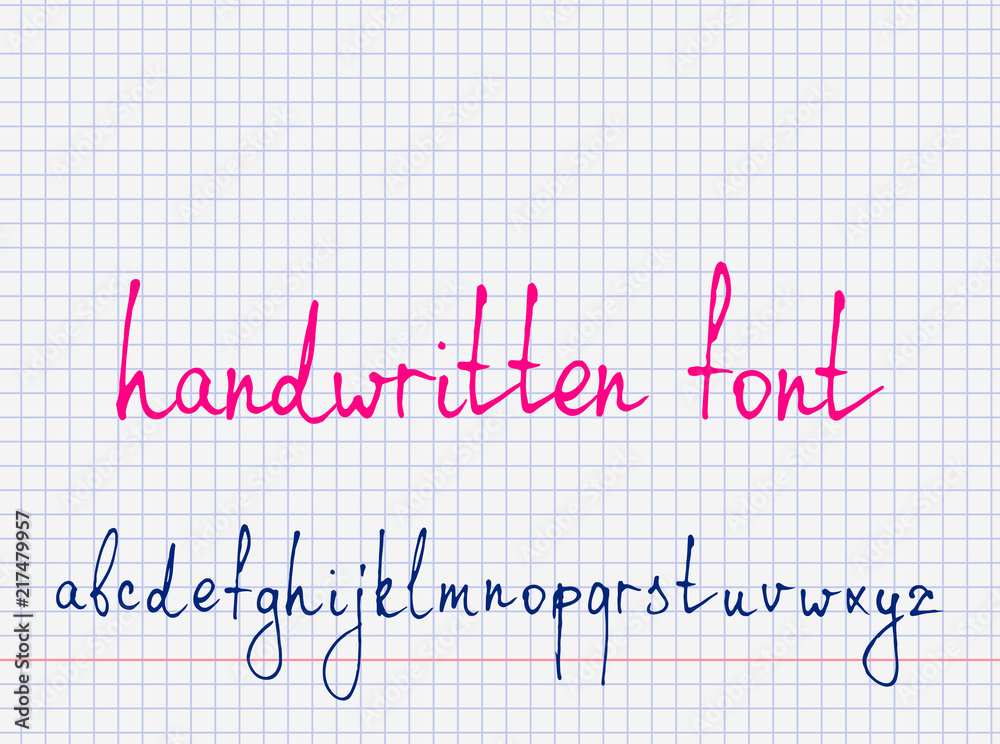 handwritten font
abcdefghijklmnopqrstuvwxyz
Adobe Stock | #217479957